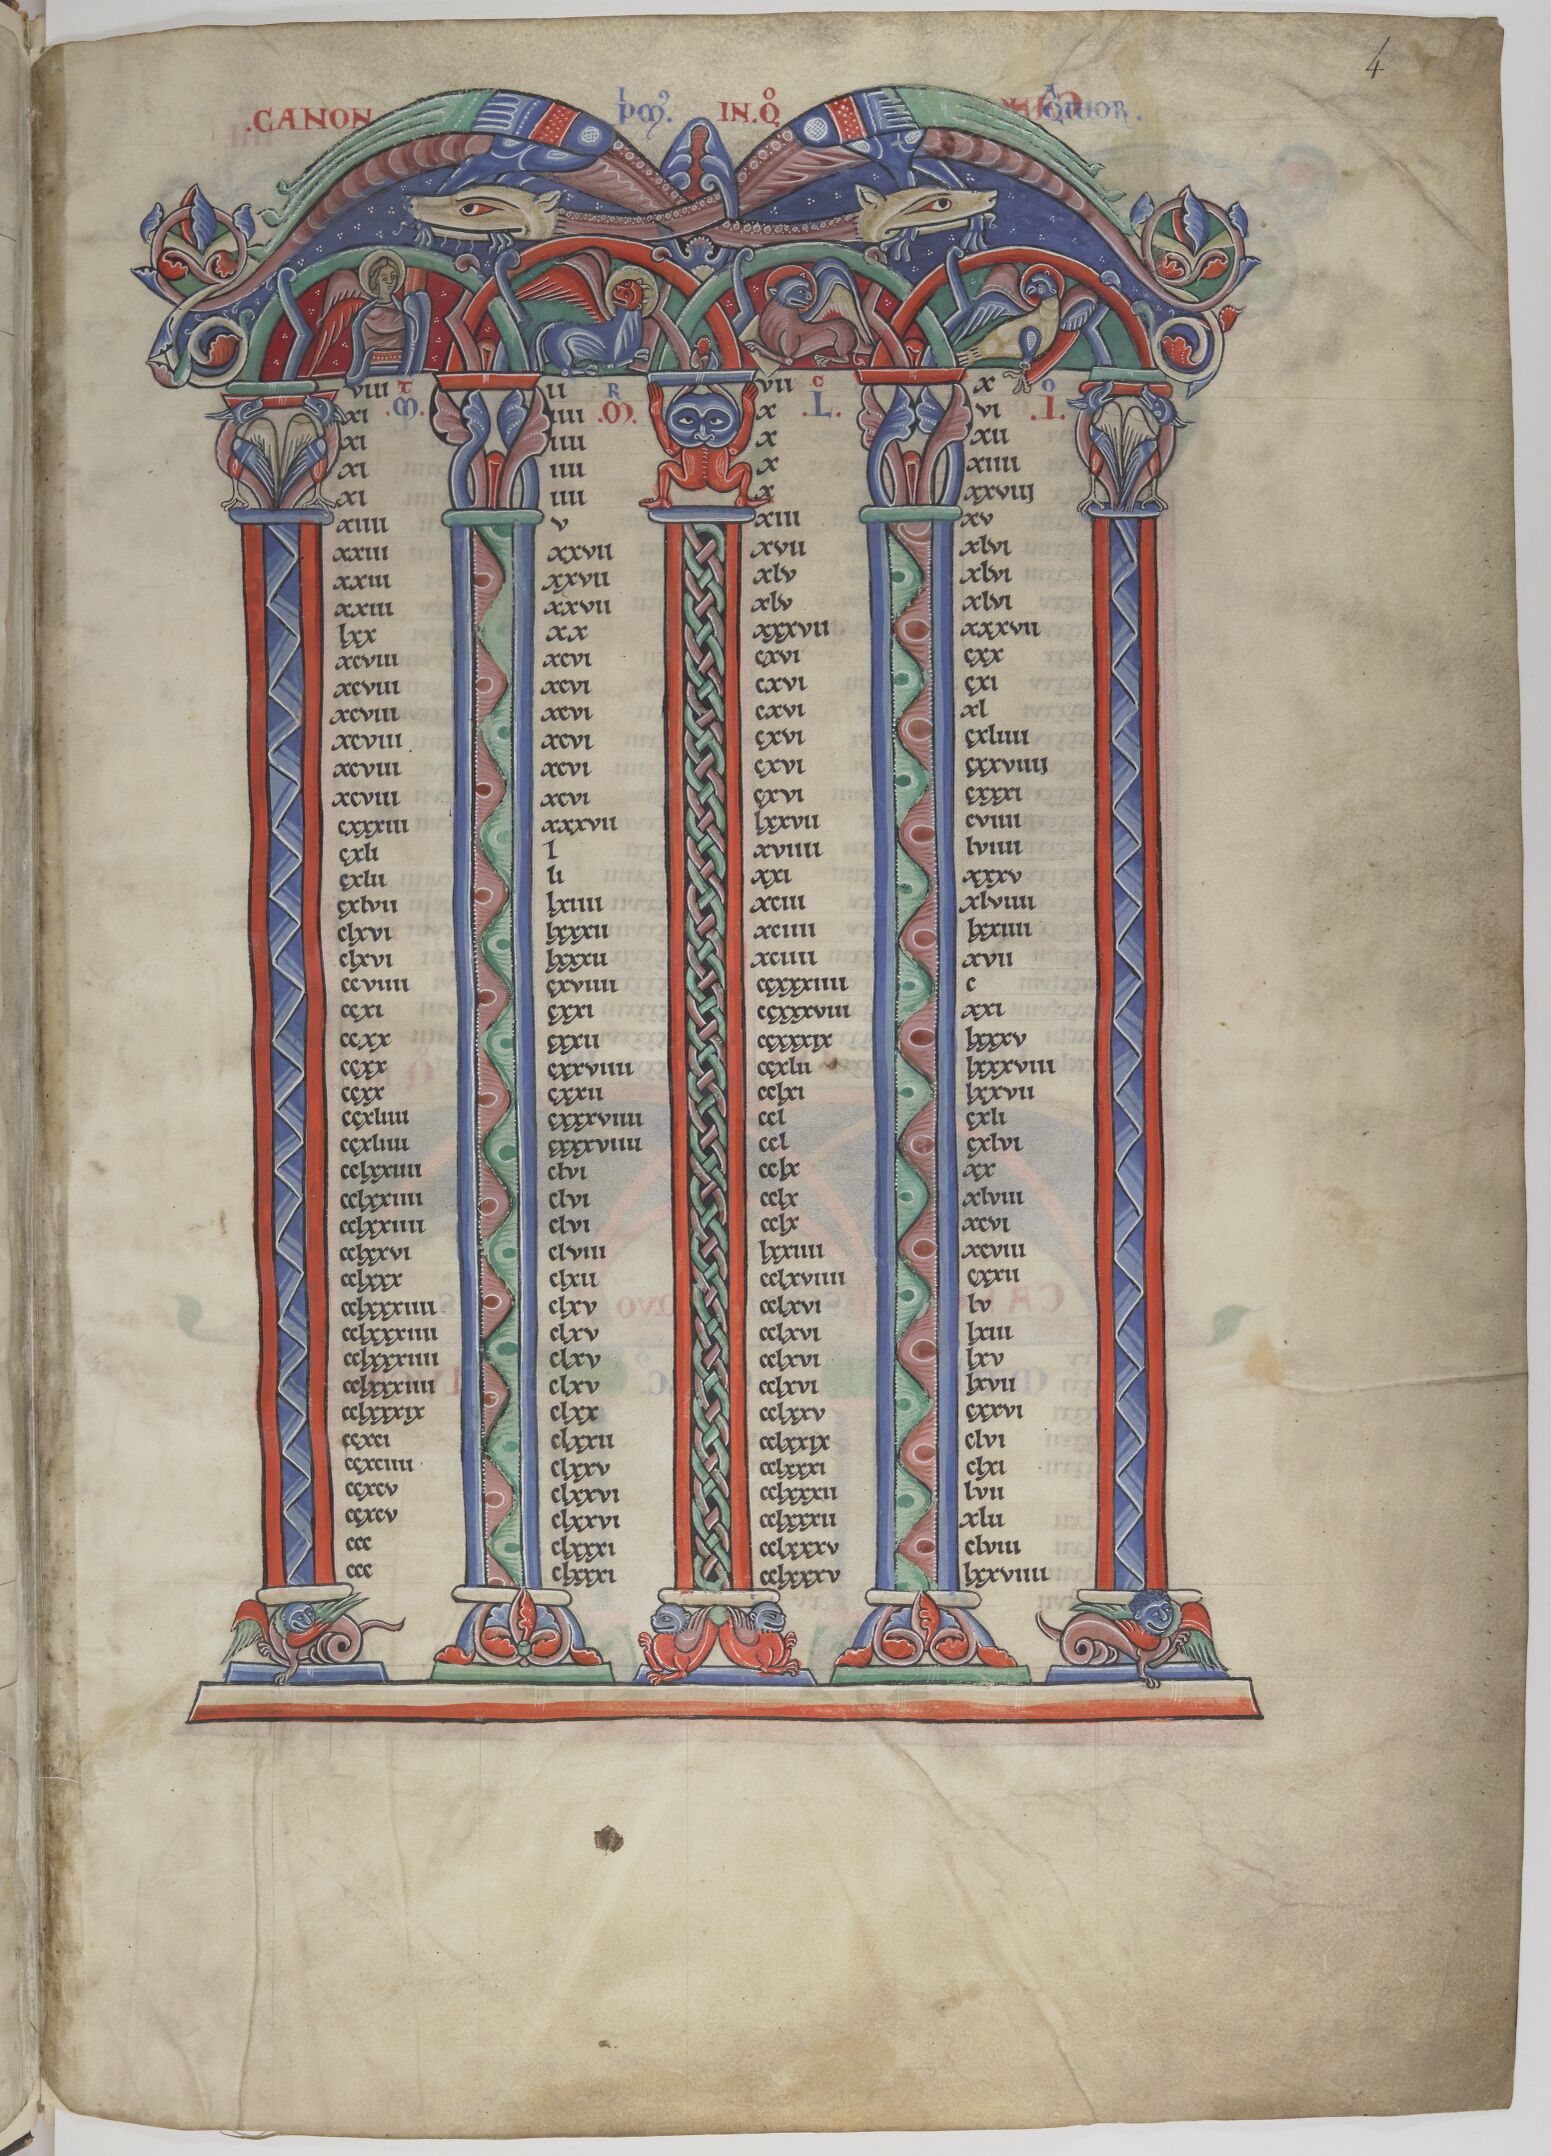 4
.CANON I Pm̄. IN.Qo A QTUOR.
viii ii vii x
.Mt. .MR. .LC. .IO.
xi iiii x vi
xi iiii x xii
xi iiii x xiiii
xi iiii x xxviij
xiiii v xiii xv
xxiii xxvii xvii xlvi
xxiii xxvii xlv xlvi
xxiii xxvii xlv xlvi
lxx xx xxxvii xxxvii
xcviii xcvi cxvi cxx
xcviii xcvi cxvi cxi
xcviii xcvi cxvi xl
xcviii xcvi cxvi cxliiii
xcviii xcvi cxvi cxxviiij
xcviii xcvi cxvi cxxxi
cxxxiii xxxvii lxxvii cviiii
cxli l xviiii lviiii
cxlii li xxi xxxv
cxlvii lxiiii xciii xlviiii
clxvi lxxxii xciiii lxxiiii
clxvi lxxxii xciiii xvii
ccviiii cxviiii ccxxxiiii c
ccxi cxxi ccxxxviii xxi
ccxx cxxii ccxxxix lxxxv
ccxx cxxviiii ccxlii lxxxviii
ccxx cxxii cclxi lxxvii
ccxliiii cxxxviiii ccl cxli
ccxliiii cxxxviiii ccl cxlvi
cclxxiiii clvi cclx xx
cclxxiiii clvi cclx xlviii
cclxxiiii clvi cclx xcvi
cclxxvi clviii lxxiiii xcviii
cclxxx clxii cclxviiii cxxii
cclxxxiiii clxv cclxvi lv
cclxxxiiii clxv cclxvi lxiii
cclxxxiiii clxv cclxvi lxv
cclxxxiiii clxv cclxvi lxvii
cclxxxix clxx cclxxv cxxvi
ccxci clxxii cclxxix clvi
ccxciiii clxxv cclxxxi clxi
ccxcv clxxvi cclxxxii lvii
ccxcv clxxvi cclxxxii xlii
ccc clxxxi cclxxxv clviii
ccc clxxxi cclxxxv lxxviiii